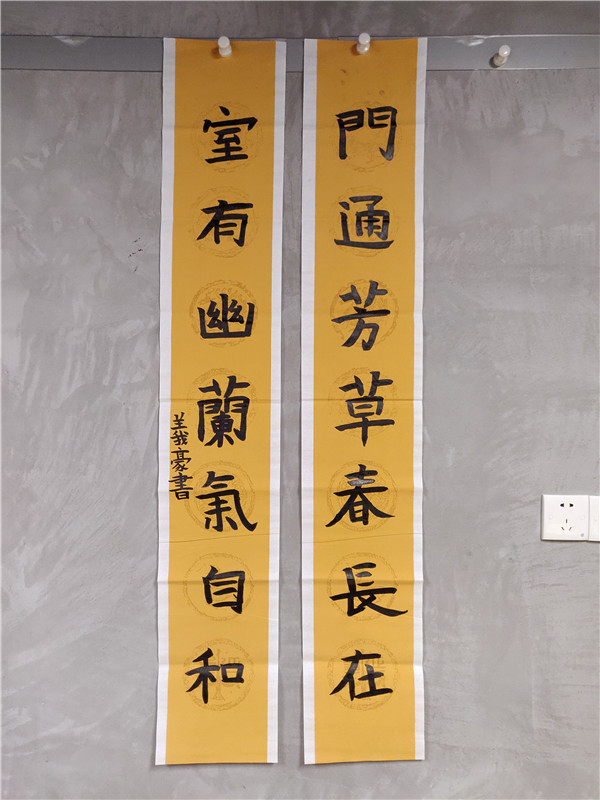 門通芳草春長在
室有幽蘭氣自和
義豪書